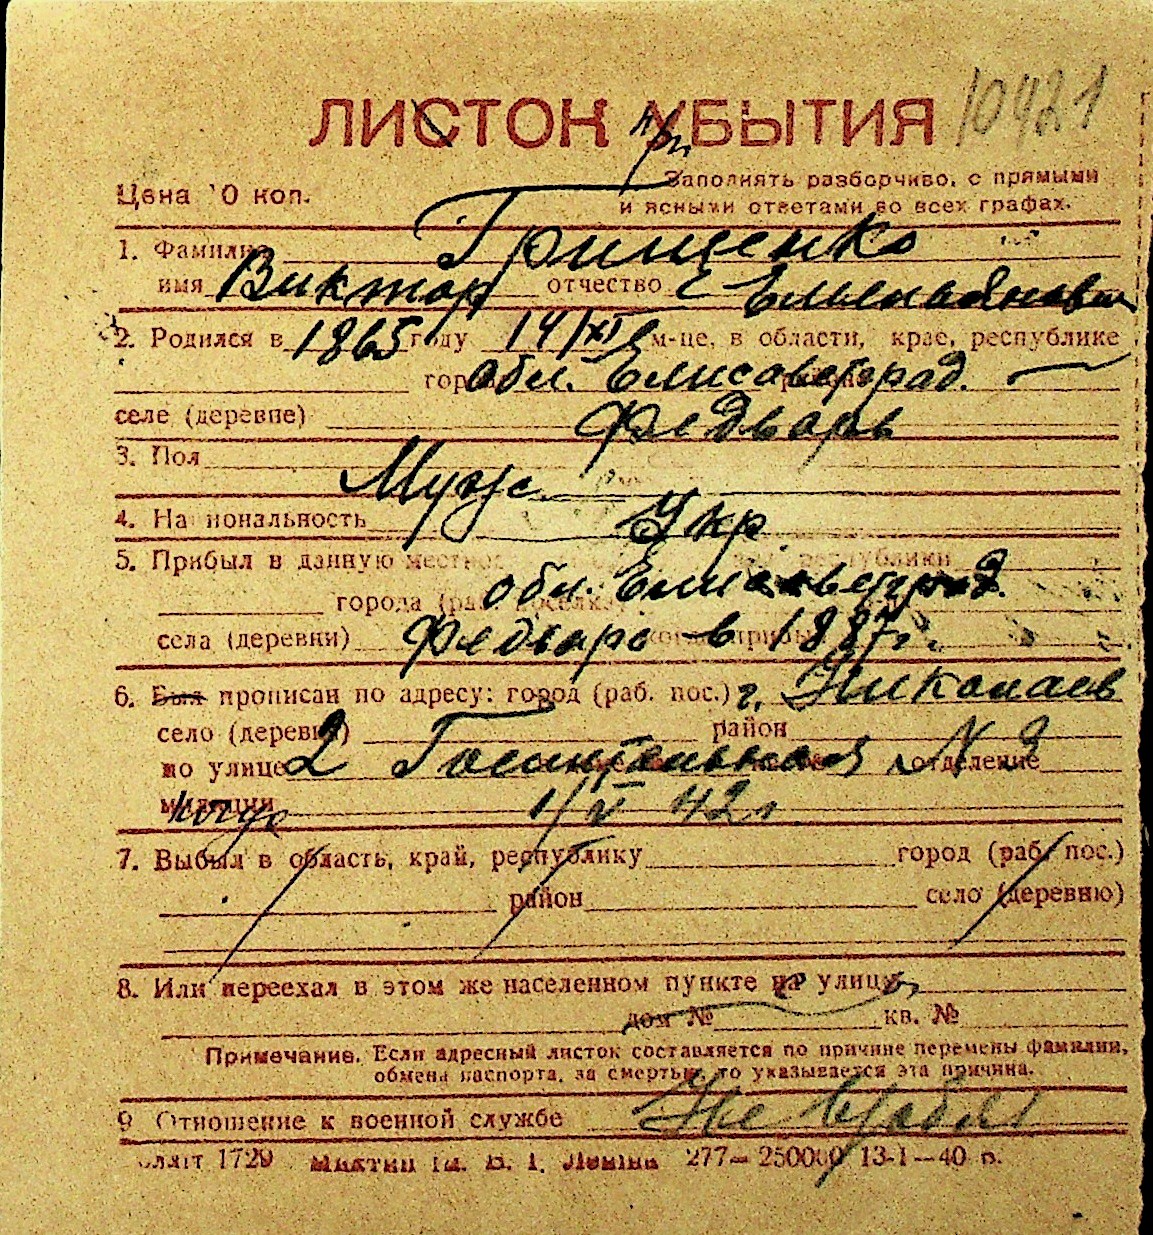 10421
ЛИСТОК УБЫТИЯ
при
Цена 10 коп.
Заполнять разборчиво, с прямыми
и ясными ответами во всех графах.
1. Фамилия Грищенко
имя Виктор отчество Емельянович
2. Родился в 1865 году 14/XI м-це, в области, крае, республике
город обл. Елисаветград.
селе (деревне) Федварь
3. Пол Муж.
4. Национальность Укр.
5. Прибыл в данную местнос республики
города обл. Елисаветград.
села (деревни) Федварь в 1887 г.
6. Был прописан по адресу: город (раб. пос.) г. Николаев
село (деревня) район
по улице 2 Госпитальная N 3 отделение
милиции 1/V 42 г.
7. Выбыл в область, край, республику город (раб. пос.)
район село (деревню)
8. Или переехал в этом же населенном пункте на улицу
дом № кв. №
Примечание. Если адресный листок составляется по причине перемены фамилии,
обмена паспорта, за смертью, то указывается эта причина.
9 Отношение к военной службе
1729 277—250000 13-1—40 г.